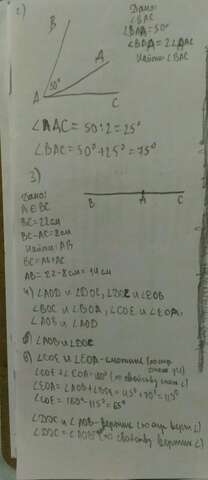 2)
B
Дано:
∠BAC
∠BAД=50°
∠BAД=2∠ДAC
Найти: ∠BAC
Д
50°
A
C
∠ДAC = 50:2=25°
∠BAC = 50°+25°=75°
3)
Дано:
A∈BC
BC=22см
BC-AC=8см
Найти: AB
BC=AB+AC
AB=22-8см=14см
B
A
C
4) ∠AOD и ∠DOB, ∠DOE и ∠EOB
∠BOC и ∠BOA, ∠COE и ∠EOA,
∠AOB и ∠AOD
5) ∠AOB и ∠DOC
6)
∠COE и ∠EOA-смежные
∠COE+∠EOA=180° (по свойству смеж ∠)
∠EOA=∠AOD+∠DOE=45°+70°=115°
∠COE=180°-115°=65°
∠DOC и ∠AOB-вертик
∠DOC=∠AOB (по свойству вертик ∠)